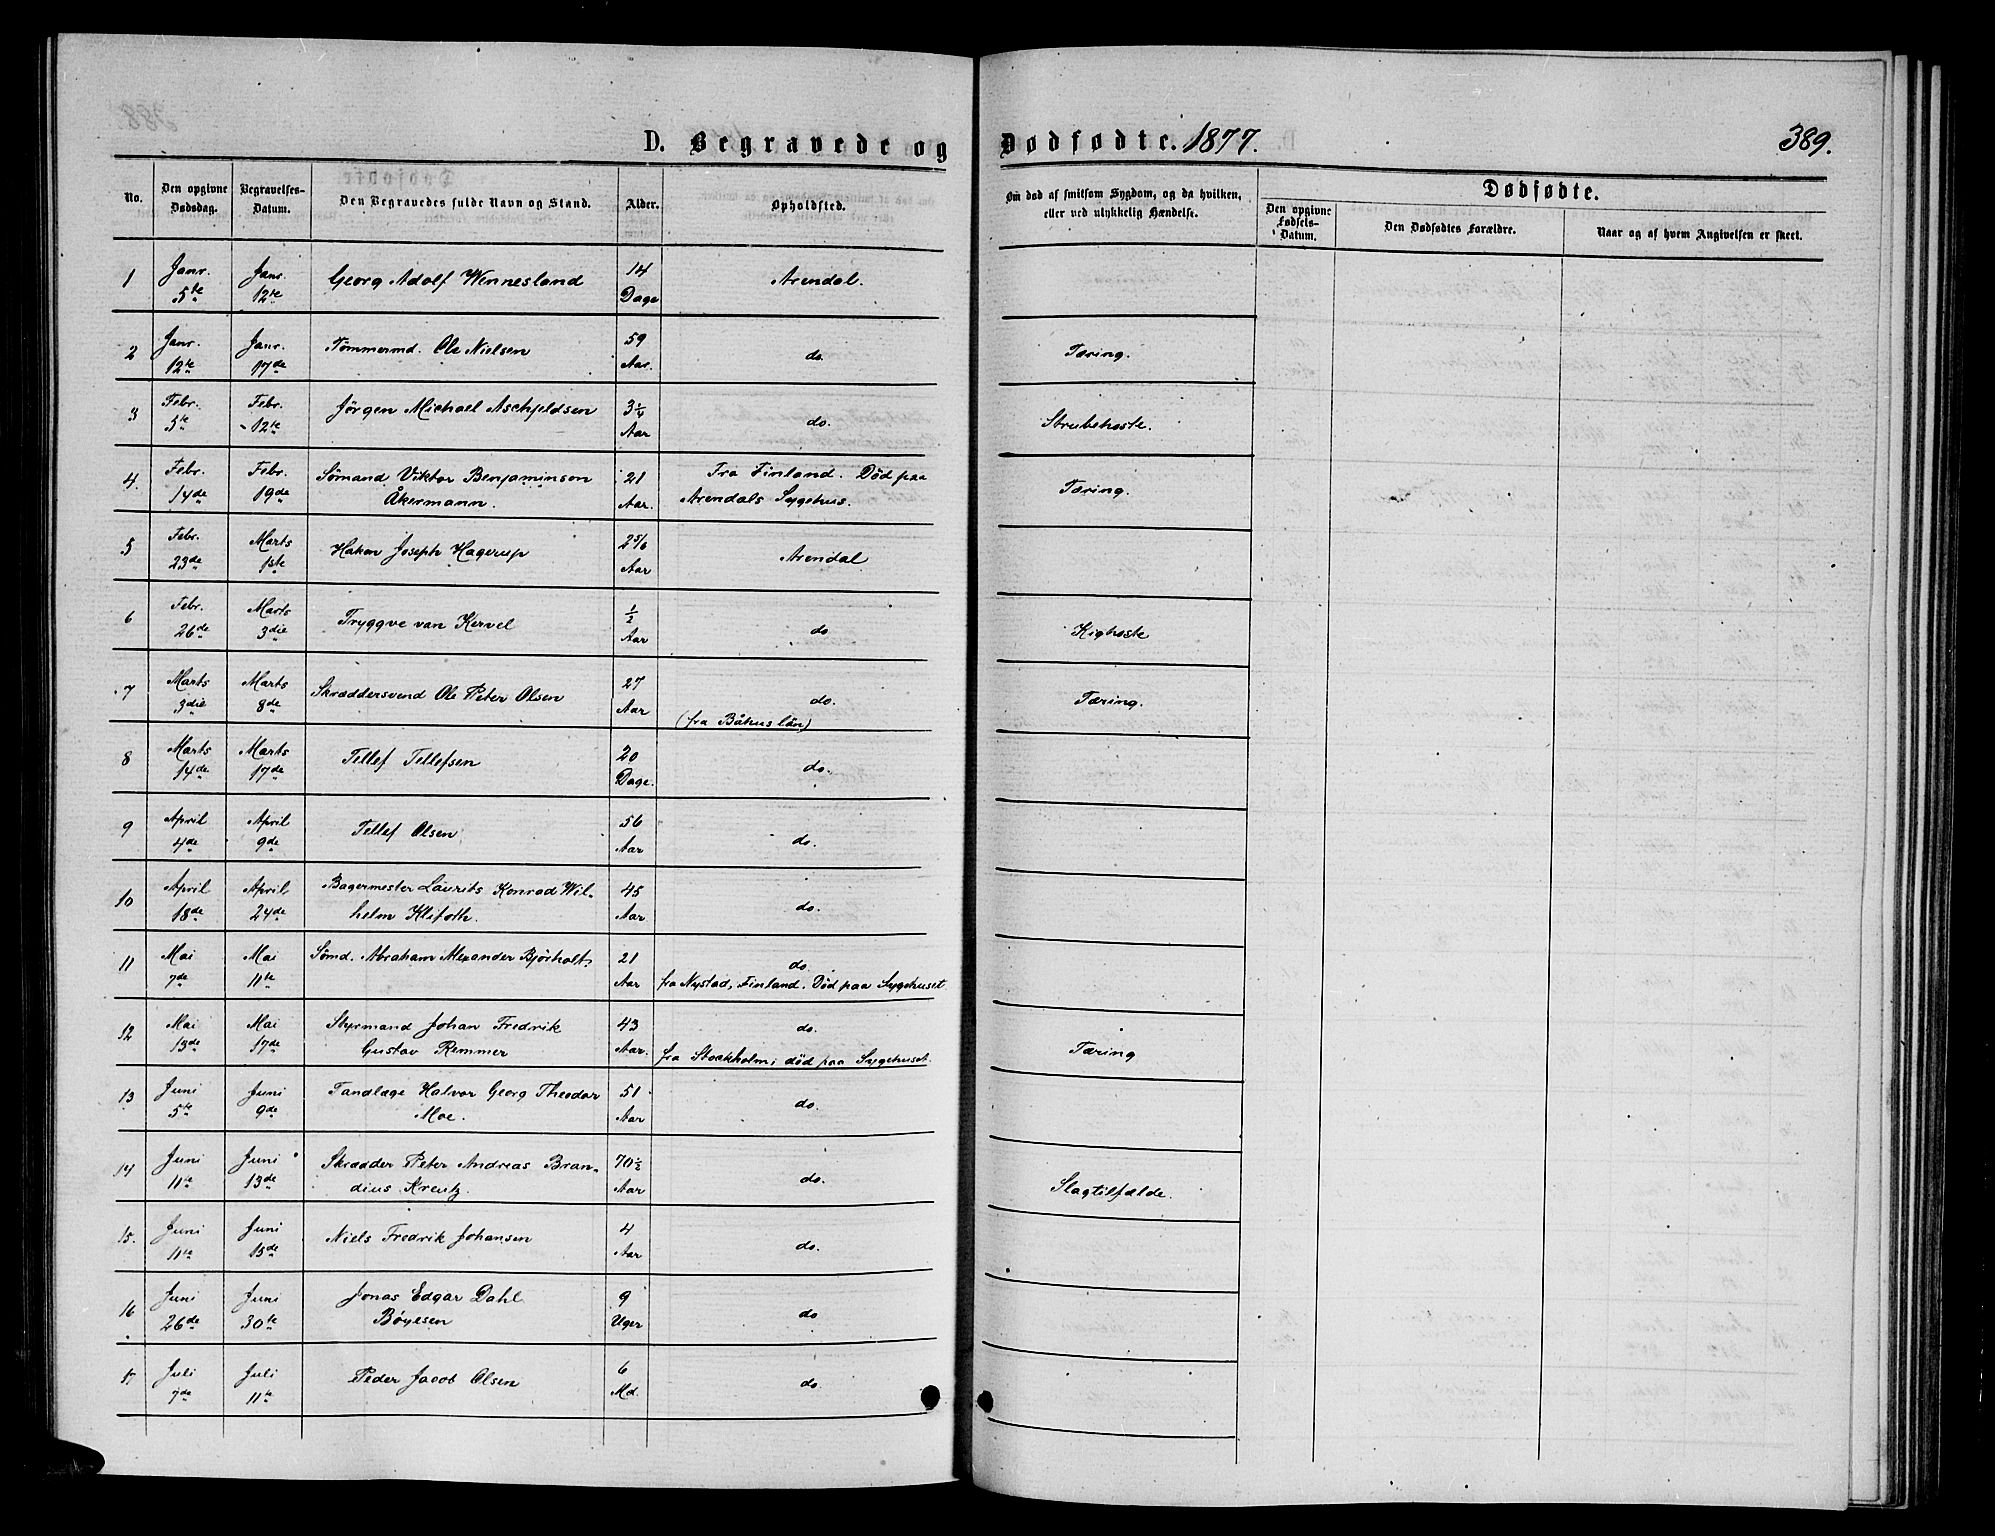 D. Begravede og Dødfødte. 1877. 389.
No.
Den opgivne Dødsdag.
Begravelses-Datum.
Den Begravedes fulde Navn og Stand.
Alder.
Opholdsted.
Om død af smitsom Sygdom, og da hvilken, eller ved ulykkelig Hændelse.
Dødfødte.
Den opgivne Fødsels-Datum.
Den Dødfødtes Forældre.
Naar og af hvem Angivelsen er skeet.
1 Janr. 5te Janr. 12te Georg Adolf Wennesland 14 Dage Arendal.
2 Janr. 12te Janr. 17de Tömmermd. Ole Nielsen 59 Aar. do. Tæring.
3 Febr. 5te Febr. 12te Jörgen Michael Aschjeldsen 3¼ Aar do. Strubehoste.
4. Febr. 14de Febr. 19de Sömand Viktor Benjaminson Åkermann. 21 Aar. Fra Finland. Död paa Arendals Sygehus. Tæring.
5 Febr. 23de Marts 1ste Hakon Joseph Hagerup 2 5/6 Aar Arendal
6 Febr. 26de Marts 3die Tryggve van Kervel ½ Aar do Kighoste
7 Marts 3die Marts 8de Skræddersvend Ole Peter Olsen 27 Aar do. (fra Båhus län) Tæring.
8 Marts 14de Marts 17de Tellef Tellefsen 20 Dage. do.
9 April 4de April 9de Tellef Olsen 56 Aar do.
10 April 18de April 24de Bagermester Laurits Konrad Wilhelm Klifoth. 45 Aar do.
11 Mai 7de Mai 11te Sömd. Abraham Alexander Björholt. 21 Aar do. fra Nystad, Finland. Död paa Sygehuset
12 Mai 13de Mai 17de Styrmand Johan Fredrik Gustav Remmer 43 Aar. do. fra Stockholm; död paa Sygehuset. Tæring
13 Juni 5te Juni 9de Tandlæge Halvor Georg Theodor Moe. 51 Aar do.
14 Juni 11te Juni 13de Skrædder Peter Andreas Brandius Kreutz. 70½ Aar do. Slagtilfælde.
15. Juni 11te Juni 15de Niels Fredrik Johansen 4 Aar do.
16 Juni 26de Juni 30te Jonas Edgar Dahl Böyesen 9 Uger do
17 Juli 7de Juli 11te Peder Jacob Olsen 6 Md. do.